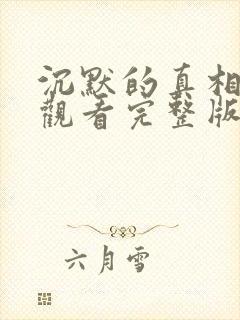 沉默的真相
觀看完整版
六月雪